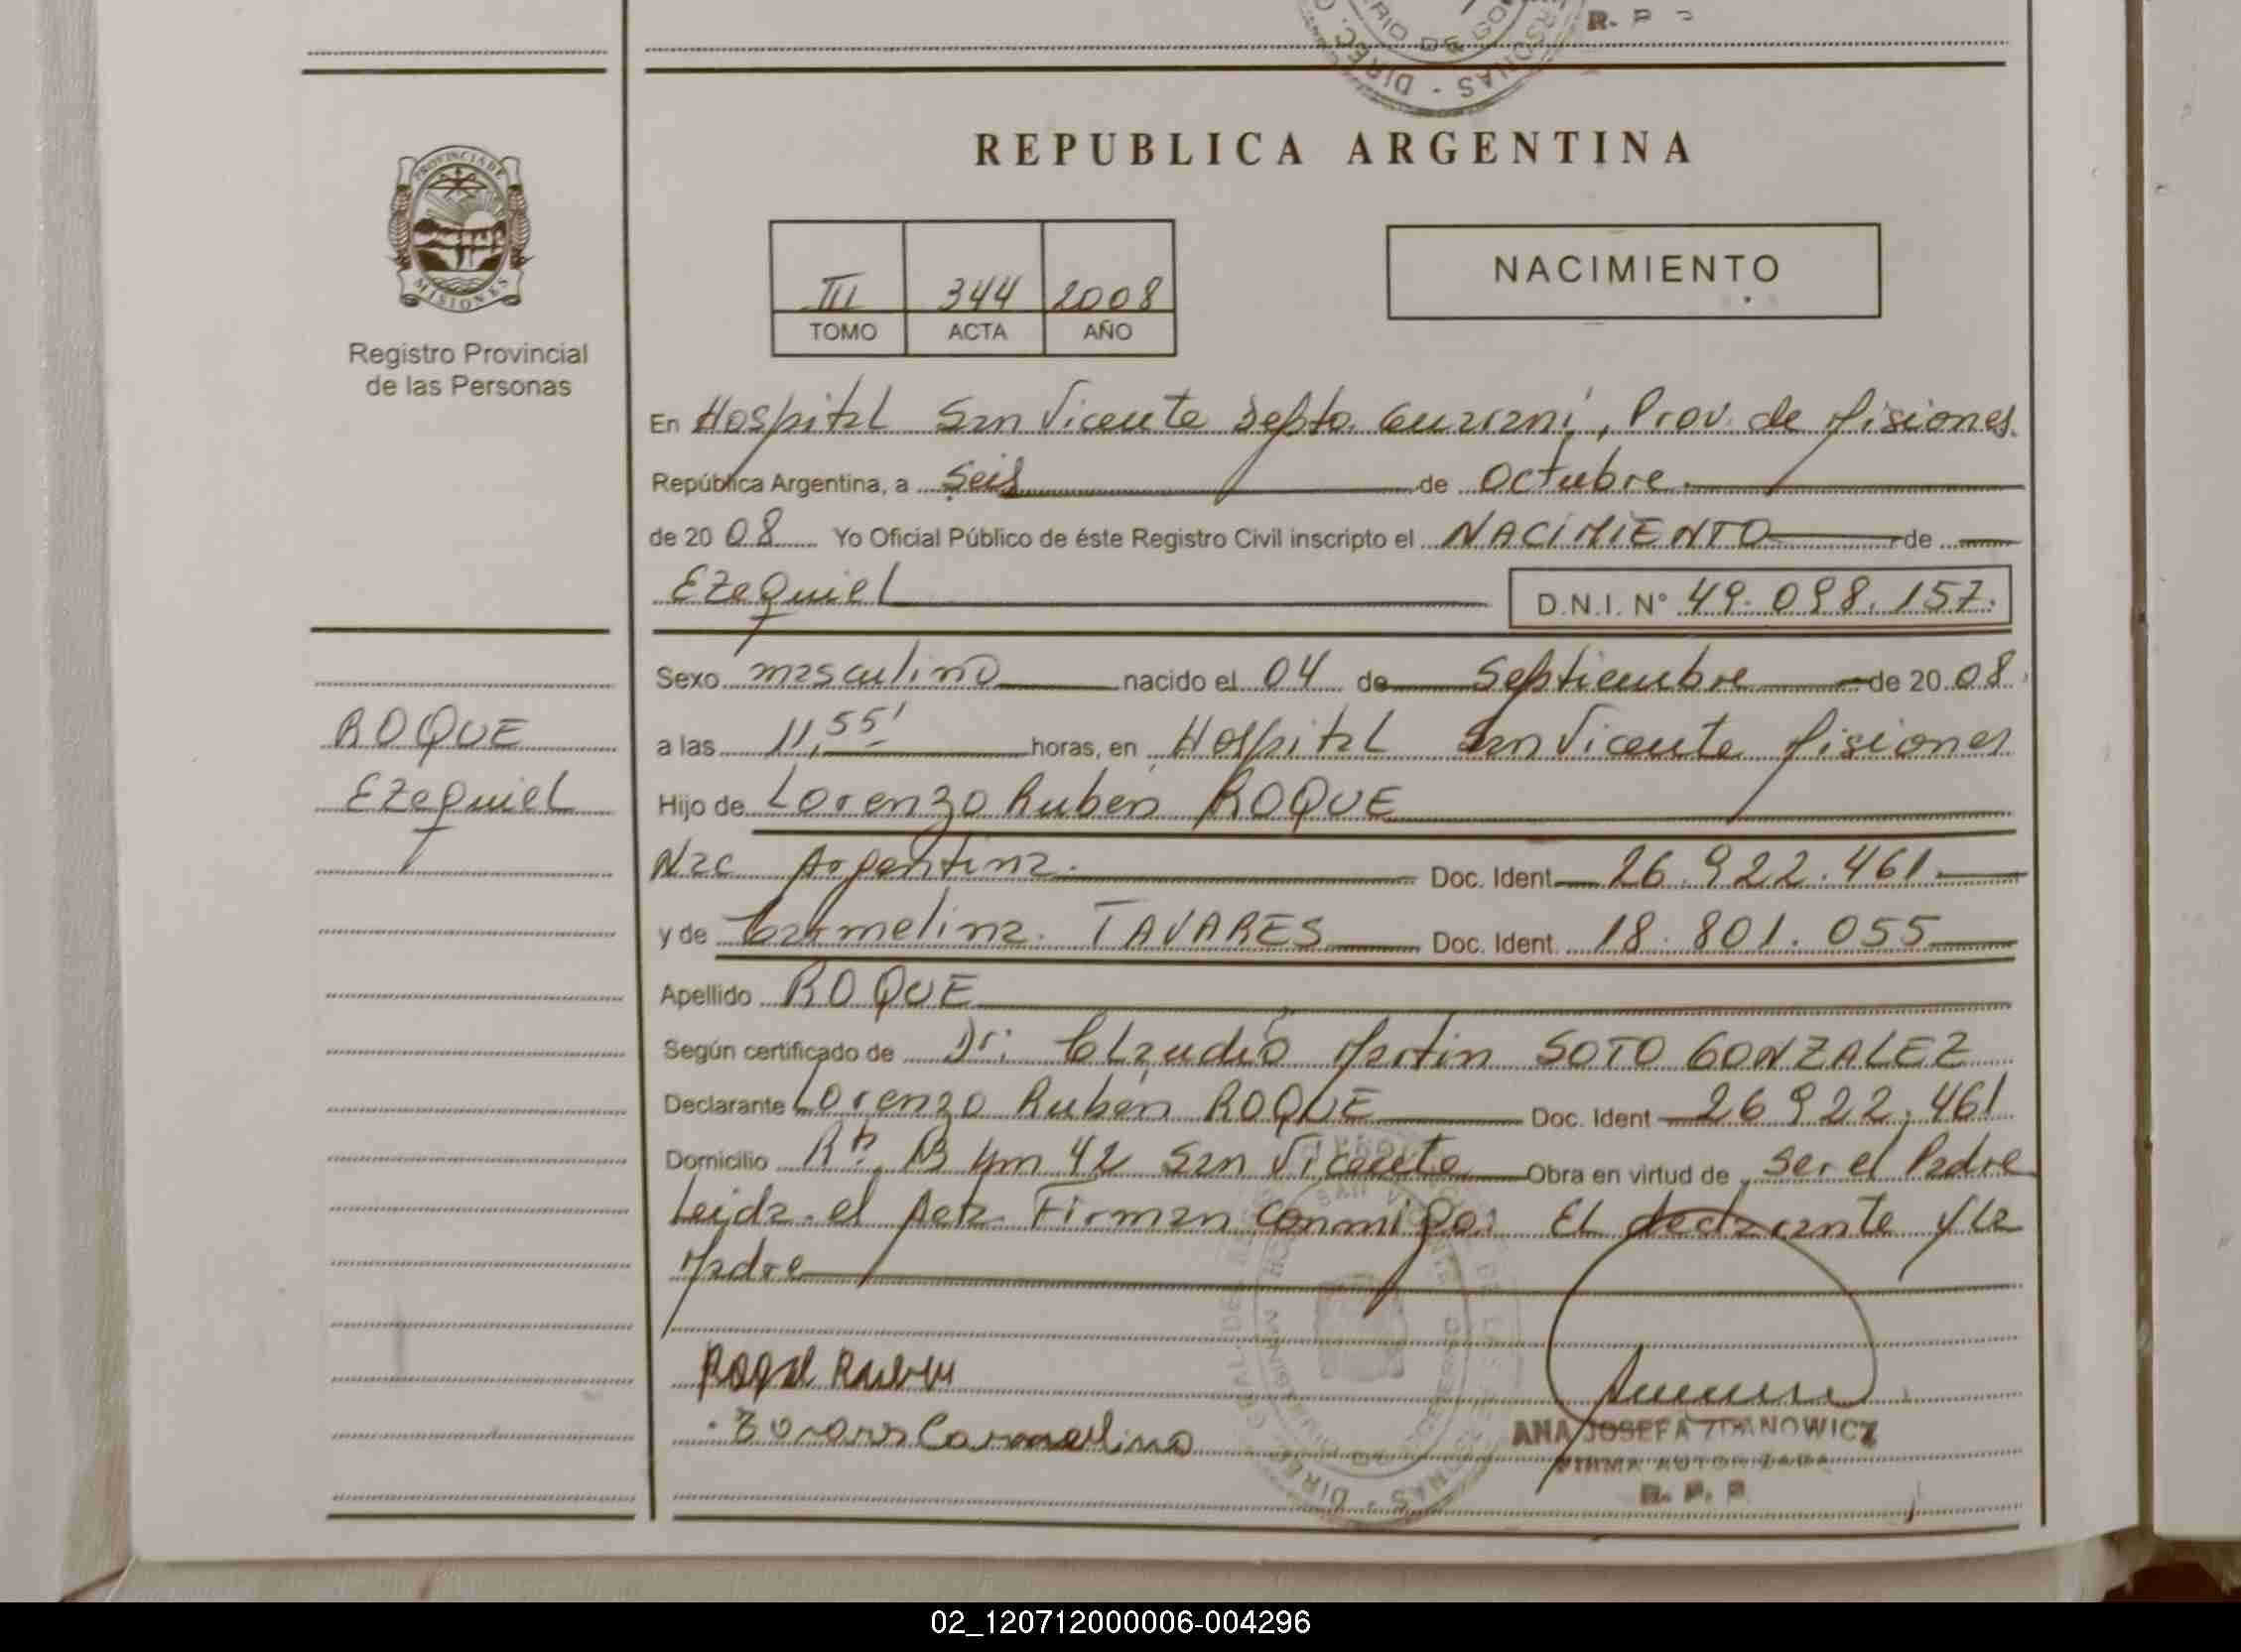 R. P P
DIREC. - RIO DE GO - RSONAS
REPUBLICA ARGENTINA
PROVINCIA DE
MISIONES
Registro Provincial
de las Personas
III 344 2008
TOMO ACTA AÑO
NACIMIENTO
En Hospital San Vicente Depto. Guaraní, Prov. de Misiones.
República Argentina, a Seis de Octubre.
de 20 08 Yo Oficial Público de éste Registro Civil inscripto el NACIMIENTO de
Ezequiel D.N.I. N° 49.098.157.
Sexo masculino nacido el 04 de Septiembre de 20 08.
a las 11,55' horas, en Hospital San Vicente Misiones
ROQUE
Ezequiel
Hijo de Lorenzo Rubén ROQUE
Nac Argentina. Doc. Ident 26.922.461.
y de Carmelina. TAVARES Doc. Ident. 18.801.055
Apellido ROQUE
Según certificado de Dr: Claudio Martin SOTO GONZALEZ
Declarante Lorenzo Rubén ROQUE Doc. Ident 26922.461
Domicilio Rta 13 Km 42 San Vicente Obra en virtud de ser el Padre
Leida el Acta Firman conmigo: El declarante y la
Madre
ANA JOSEFA ZDANOWICZ
FIRMA AUTORIZADA
R. P. P
02_120712000006-004296